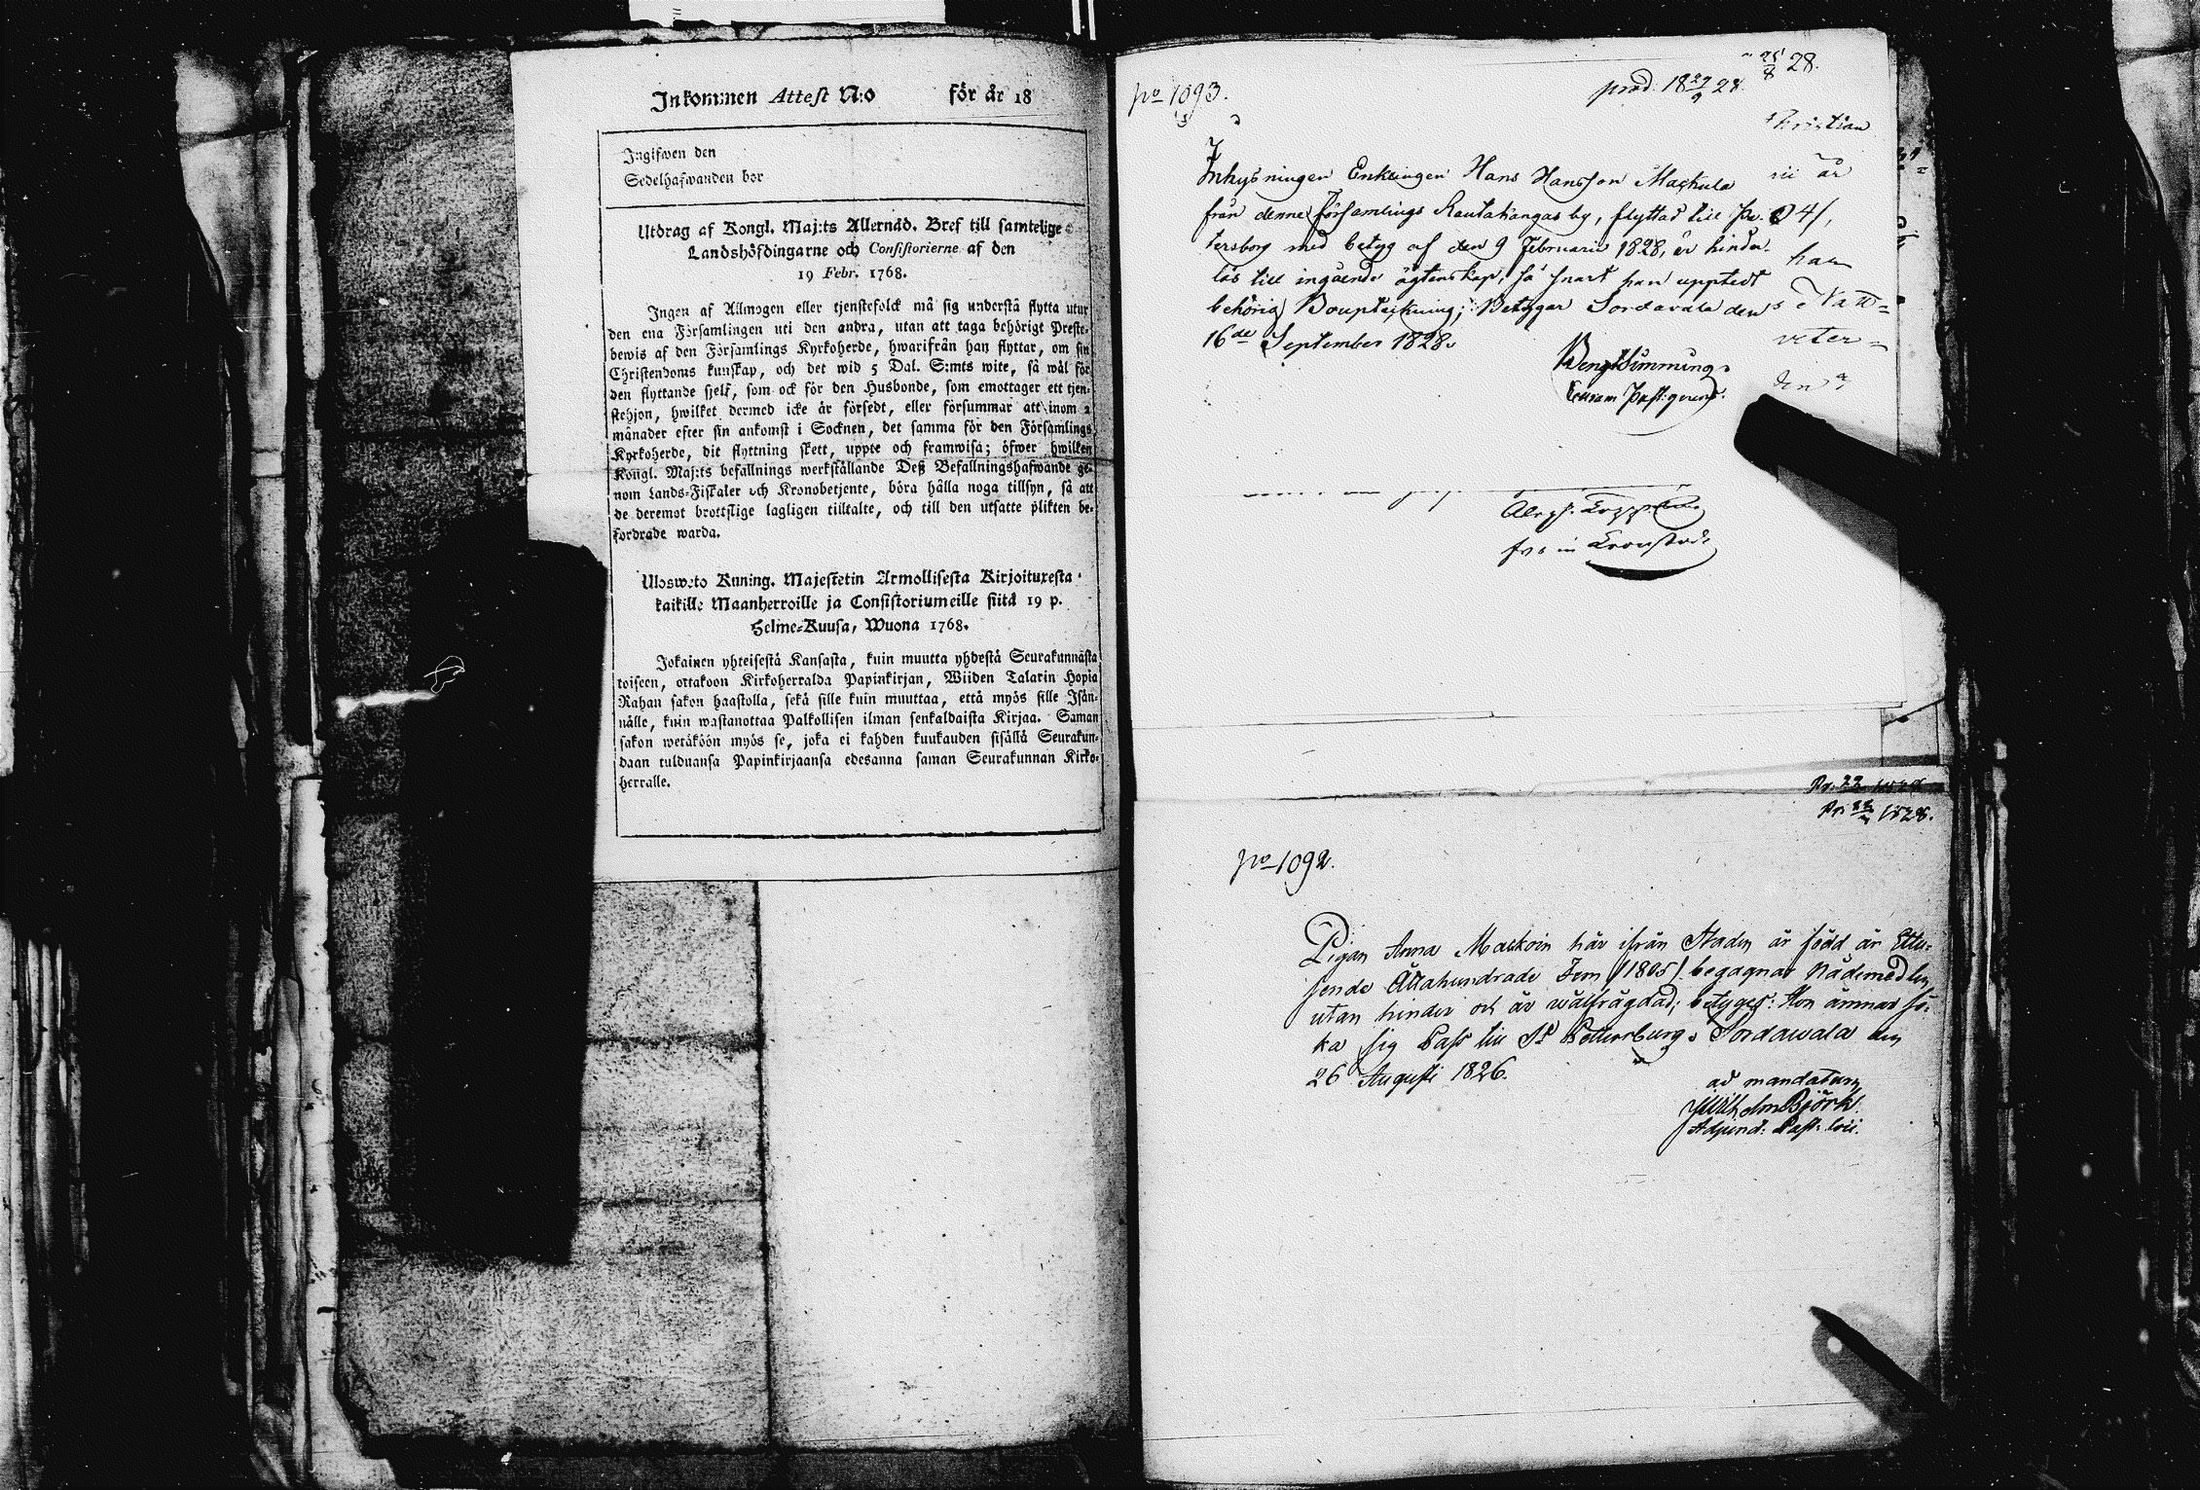 Inkommen Attest N:o för år 18
Ingifwen den
Sedelhafwanden bor
Utdrag af Kongl. Maj:ts Allernåd. Bref till samtelige
Landshöfdingarne och Consistorierne af den
19 Febr. 1768.
Ingen af Allmogen eller tjenstefolck må sig understå flytta utur
den ena Församlingen uti den andra, utan att taga behörigt Preste-
bewis af den Församlings Kyrkoherde, hwarifrån han flyttar, om sin
Christendoms kunskap, och det wid 5 Dal. S:mts wite, så wäl för
den flyttande sjelf, som ock för den Husbonde, som emottager ett tjen-
stehjon, hwilket dermed icke är försedt, eller försummar att inom 2
månader efter sin ankomst i Socknen, det samma för den Församlings
Kyrkoherde, dit flyttning skett, uppte och framwisa; öfwer hwilken
Kongl. Maj:ts befallnings werkställande Deß Befallningshafwande ge-
nom Lands-Fiskaler och Kronobetjente, böra hålla noga tillsyn, så att
de deremot brottslige lagligen tilltalte, och till den utsatte plikten be-
fordrade warda.
Ulosweto Kuning. Majestetin Armollisesta Kirjoituxesta
kaikille Maanherroille ja Consistoriumeille siitä 19 p.
Helme-Kuusa, Wuona 1768.
Jokainen yhteisestä Kansasta, kuin muutta yhdestä Seurakunnasta
toiseen, ottakoon Kirkoherralda Papinkirjan, Wiiden Talarin Hopia
Rahan sakon haastolla, sekä sille kuin muuttaa, että myös sille Isän-
nälle, kuin wastanottaa Palkollisen ilman senkaldaista Kirjaa. Saman
sakon wetäköön myös se, joka ei kahden kuukauden sisällä Seurakun-
daan tulduansa Papinkirjaansa edesanna saman Seurakunnan Kirko-
herralle.
28.
No 1093.
prod. 18 29/9 28.
Christian
Inhysningen Enklingen Hans Hansson Maskula
från denne församlings Rautakangas by, flyttad till Pe-
tersborg med betyg af den 9 Februarii 1828, är hinder-
lös till ingående ägtenskap, så snart han uppted t
behörig Bouptekning; Betygar Sordavala den
16de September 1828.
han
veter=
den
No 1092.
1828.
Pigan Anna Maskoin här ifrån Staden är född år Ettu-
sende Åttahundrade Fem /1805/ begagnar Nådemedlen
utan hinder och är wälfrägdad; betyges: Hon ämnar sö-
ka sig Pass till St Petterburg. Sordawala den
26 Augusti 1826.
ad mandatum
Wilhelm Björk.
Adjunct. Past. loci.